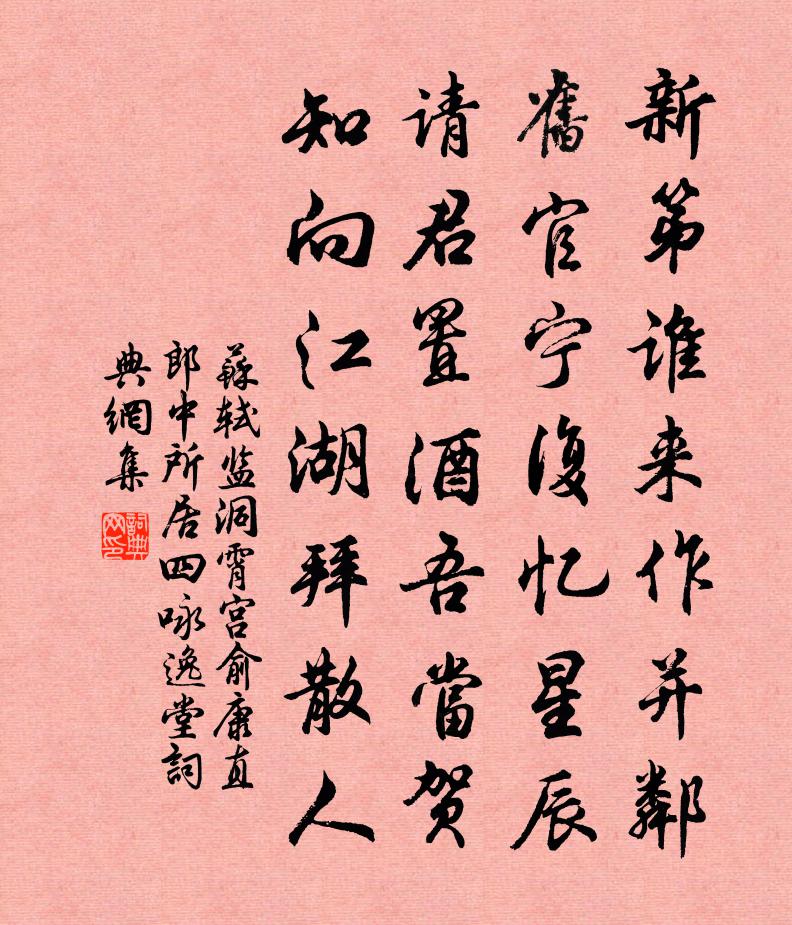 新第谁来作并鄰
舊官宁復忆星辰
请君置酒吾當贺
知向江湖拜散人
蘇轼监洞霄宫俞康直
郎中所居四咏逸堂詞
典網集
詞典
网印